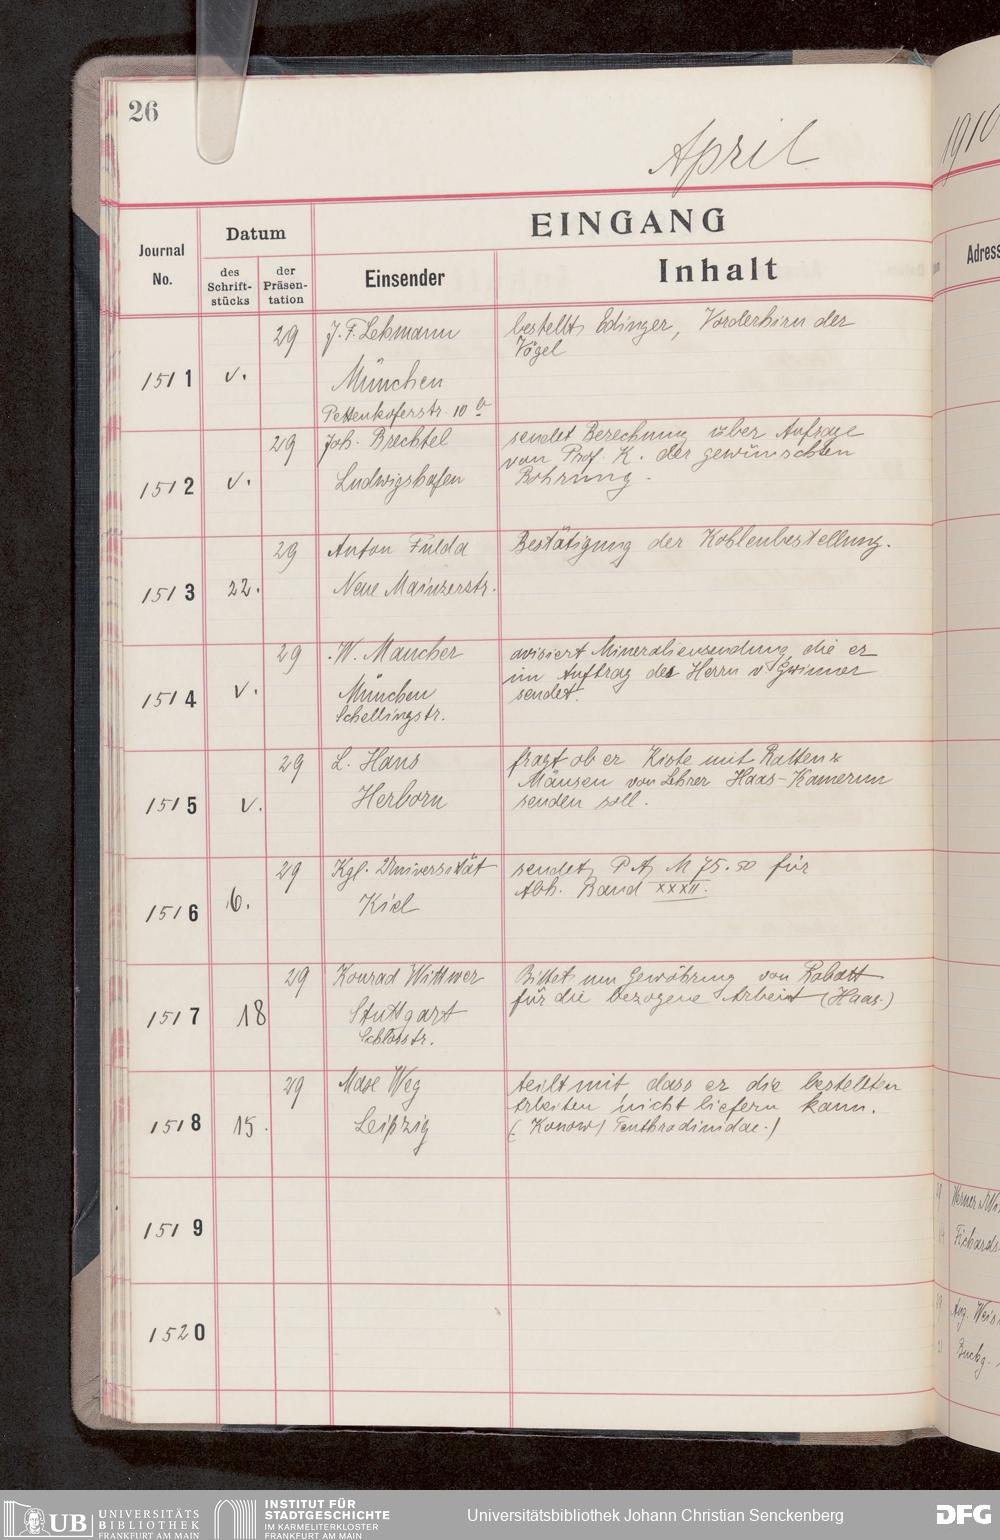 26
April
1910
EINGANG
Journal No.
Datum
des Schriftstücks
der Präsentation
Einsender
Inhalt
Adress
1511 v. 29 J. F. Lehmann
München
Pettenkoferstr. 10 b
bestellt, Edinger, Vorderhirn der
Vögel
1512 v. 29 Joh. Brechtel
Ludwigshafen
sendet Berechnung über Anfrage
von Prof. K. der gewünschten
Bohrung.
1513 22. 29 Anton Fulda
Neue Mainzerstr.
Bestätigung der Kohlenbestellung.
1514 v. 29 W. Maucher
München
Schellingstr.
avisiert Mineraliensendung, die er
im Auftrag des Herrn v. Gwinner
sendet.
1515 v. 29 L. Haas
Herborn
fragt ob er Kiste mit Ratten u
Mäusen von Lehrer Haas-Kamerun
senden soll.
1516 6. 29 Kgl. Universität
Kiel
sendet P A M 75.50 für
Abh. Band XXXII.
1517 18 29 Konrad Wittwer
Stuttgart
Schlosstr.
Bittet um Gewährung von Rabatt
für die bezogene Arbeit (Haas.)
1518 15. 29 Max Weg
Leipzig
teilt mit, dass er die bestellten
Arbeiten nicht liefern kann.
(Konow, Tenthredinidae.)
1519
1520
Werner u Wi
Fichards
Aug. Weis
Buchg.
UB
UNIVERSITÄTS
BIBLIOTHEK
FRANKFURT AM MAIN
INSTITUT FÜR
STADTGESCHICHTE
IM KARMELITERKLOSTER
FRANKFURT AM MAIN
Universitätsbibliothek Johann Christian Senckenberg
DFG